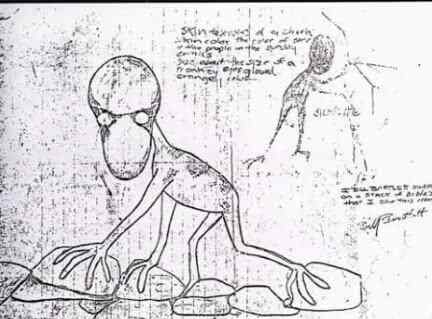 Skin texture of a shark
skin color the color of
the people in the Sunday
comics
size about the size of a
monkey eyes glowed
orange
I Bill Bartlett swear
on a stack of Bible's
that I saw this
Bill Bartlett